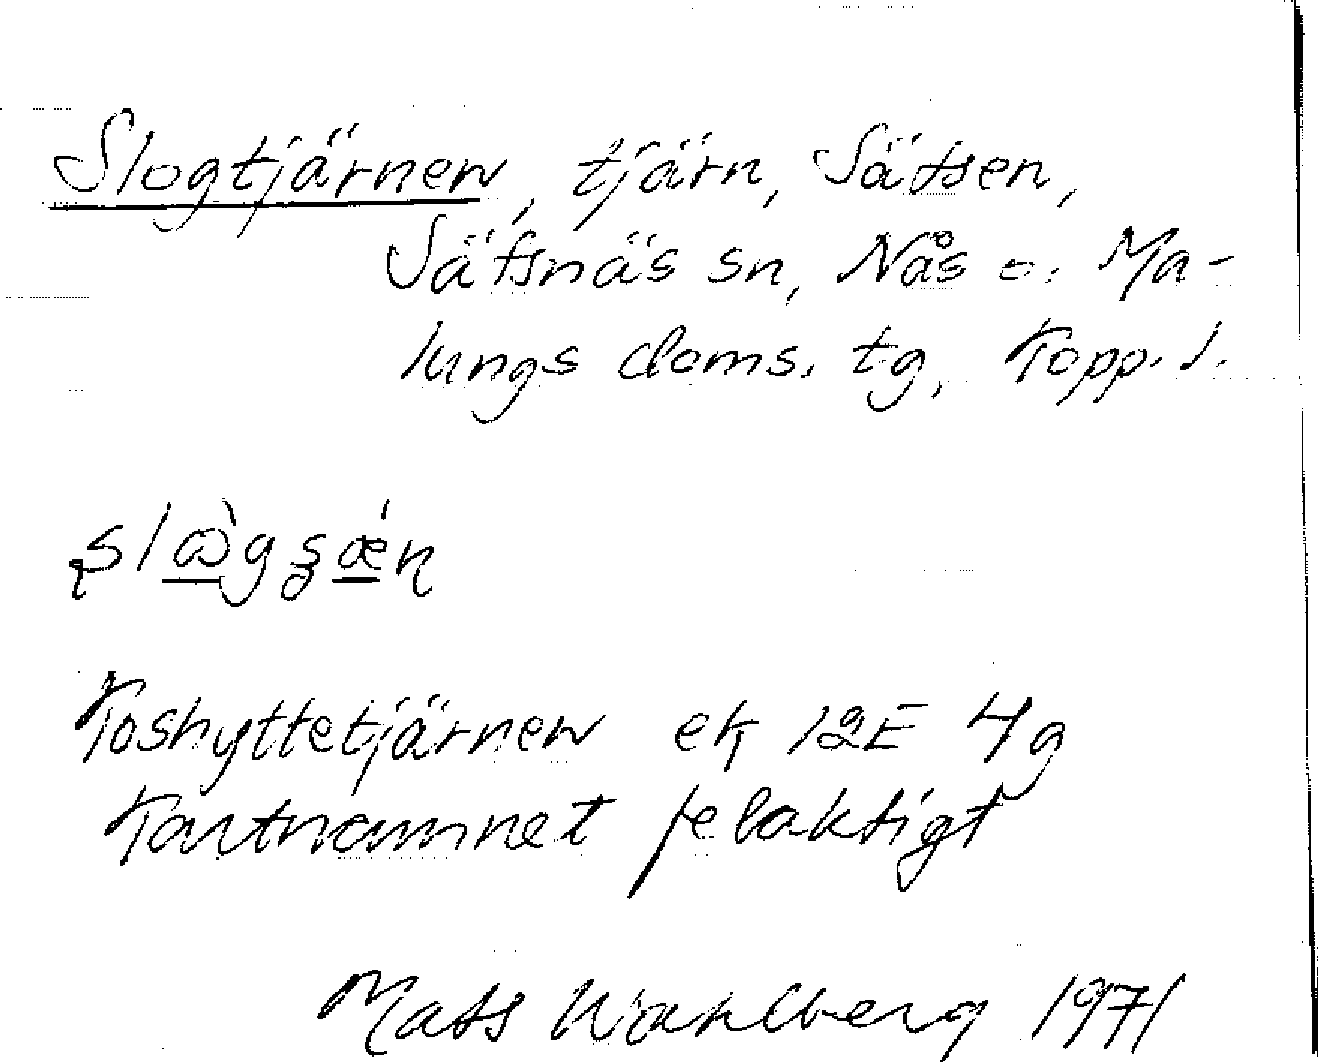 Slogtjärnen, tjärn, Sätsen,
Säfsnäs sn, Nås o. Ma-
lungs doms. tg, Kopp. l.
Toshyttetjärnen ek 12E 4g
Kartnamnet felaktigt
Mats Wahlberg 1971